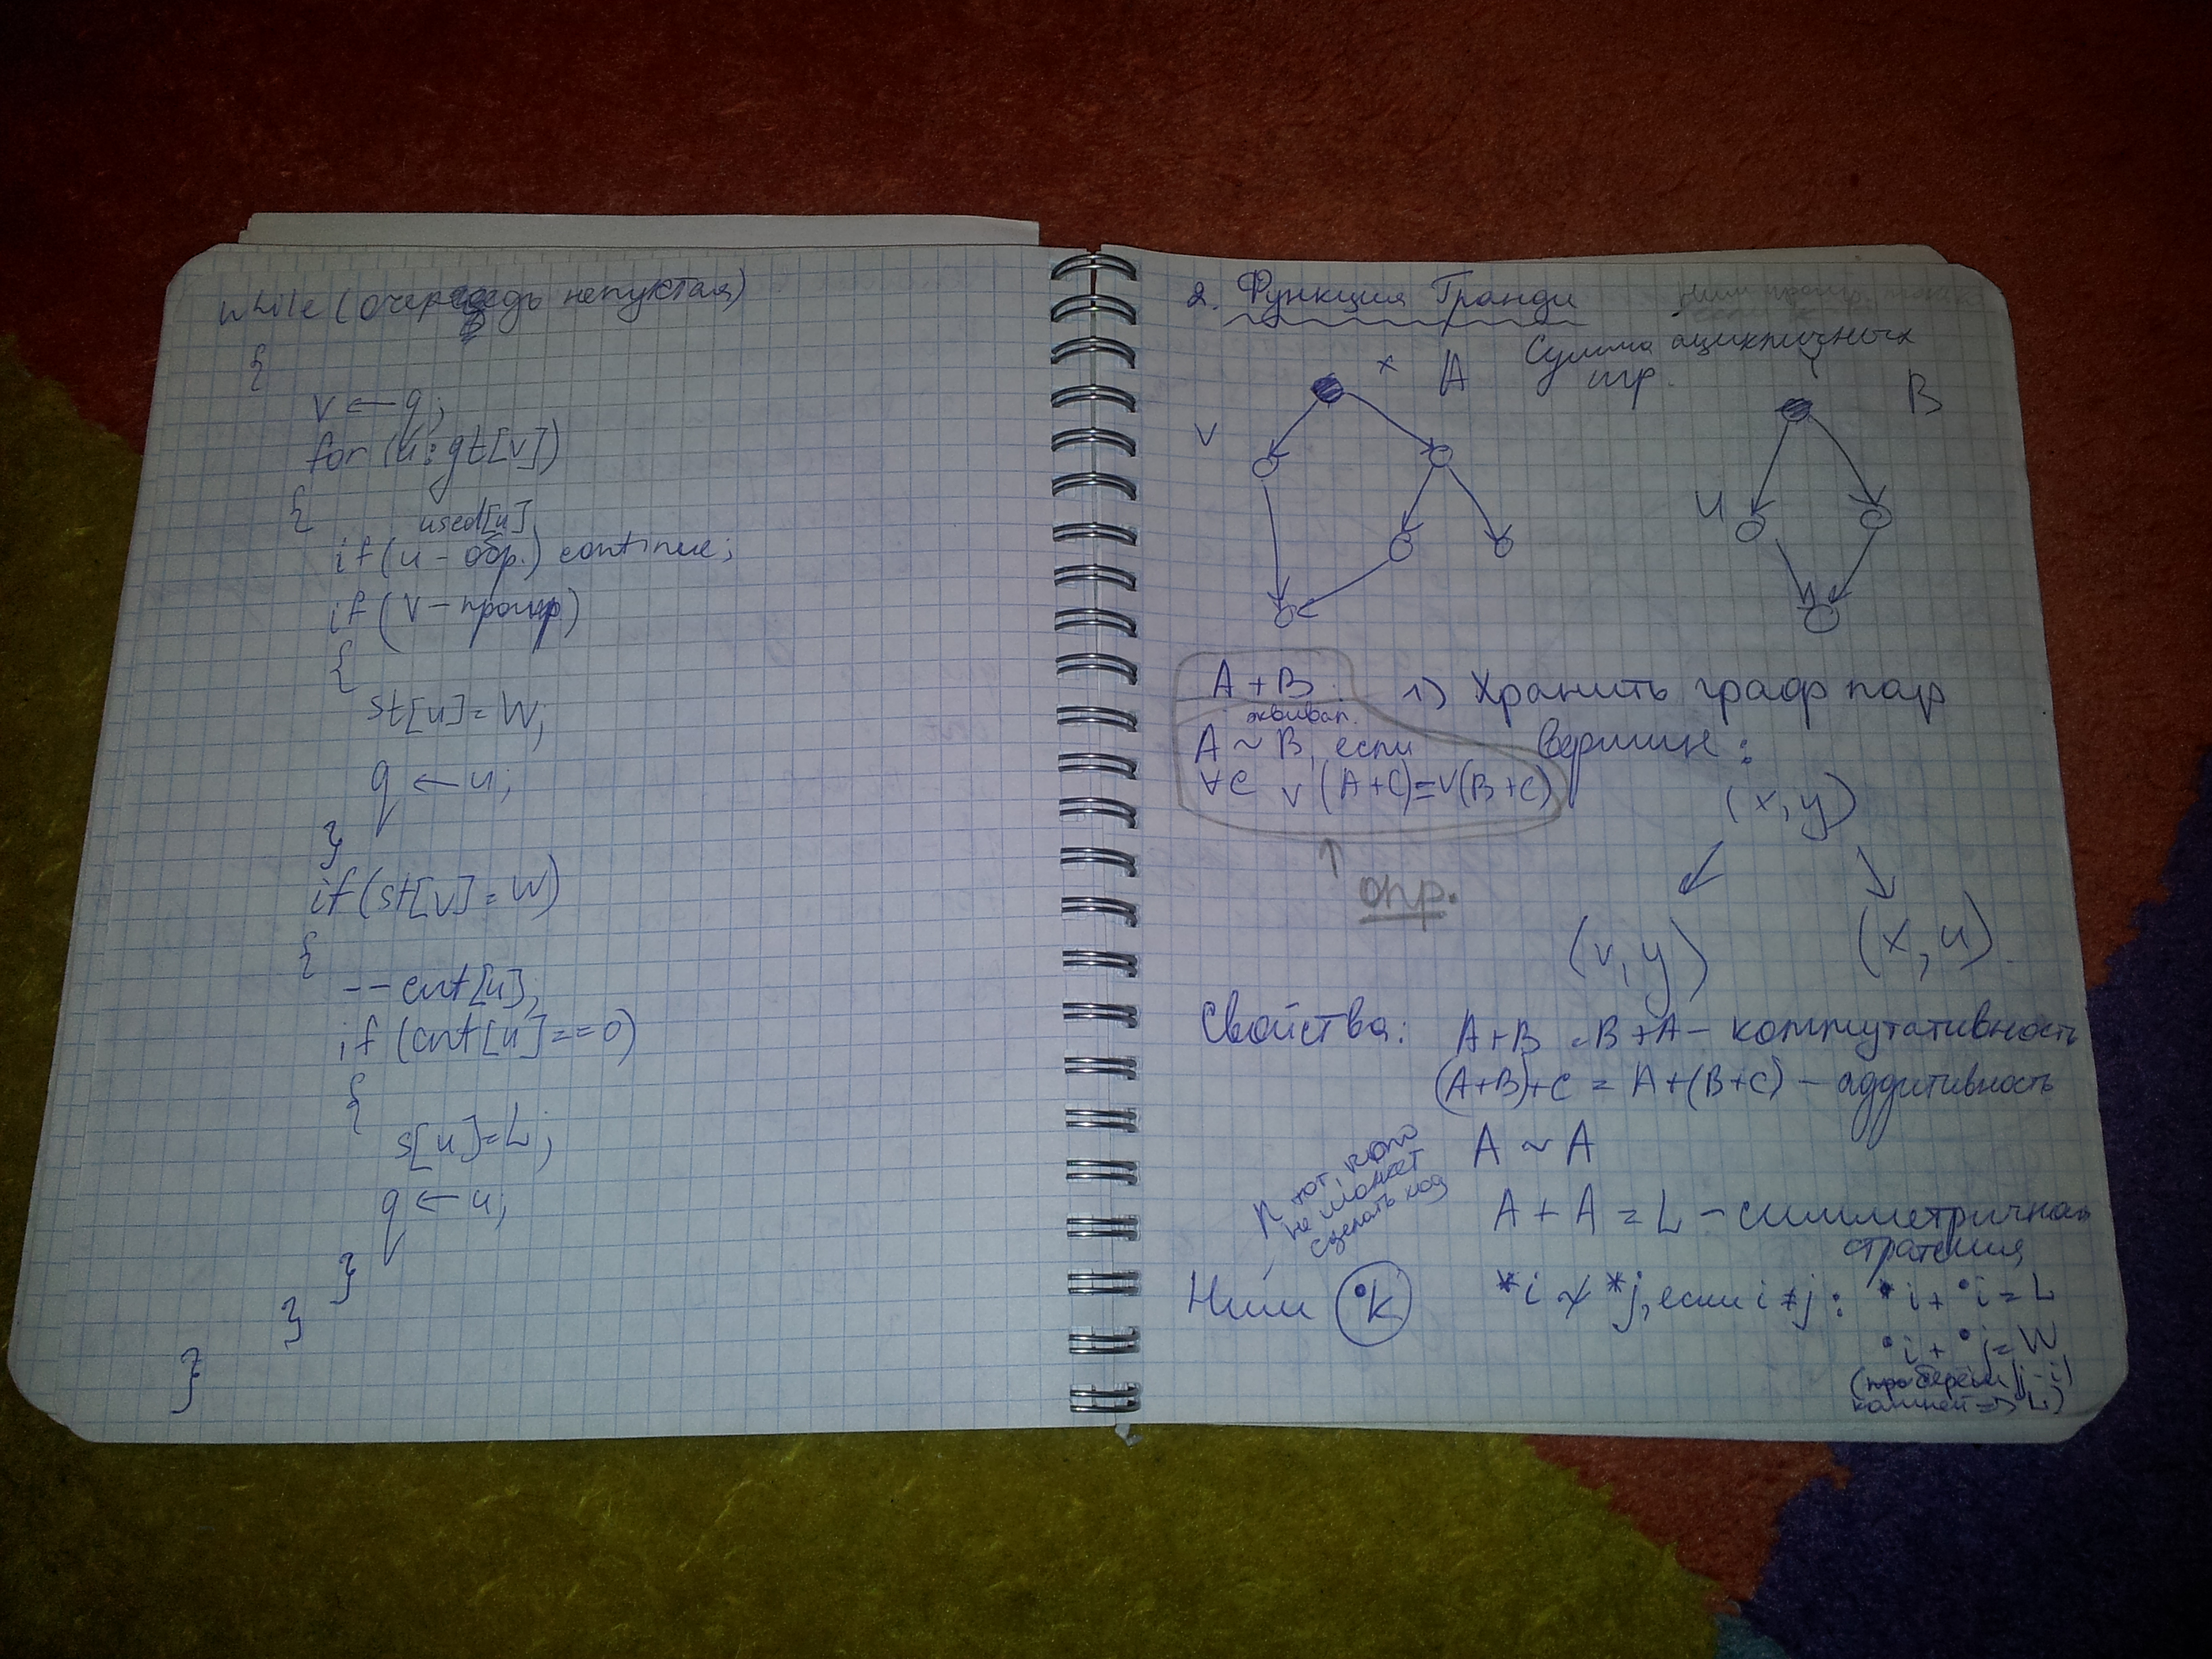 while (очередь непустая)
{
v ← q;
for (u : gt[v])
{
used[u]
if (u – обр.) continue;
if (v – проигр)
{
st[u] = W;
q ← u;
}
if (st[v] = W)
{
-- cnt[u];
if (cnt[u] == 0)
{
s[u] = L;
q ← u;
}
}
}
2. Функция Гранди
Сумма ацикличных
игр.
x A
y B
v
u
A + B
эквивал.
A ~ B, если
∀C v(A+C) = v(B+C)
↑
опр.
1) Хранить граф пар
вершин:
(x, y)
(v, y) (x, u).
Свойства: A+B = B+A – коммутативность
(A+B)+C = A+(B+C) – аддитивность
A ~ A
тот, кто
не может
сделать ход
A + A = L – симметричная
стратегия
Ним *k *i ≁ *j, если i ≠ j: *i + *i = L
*i + *j = W
(берём |j - i|
камней => L)